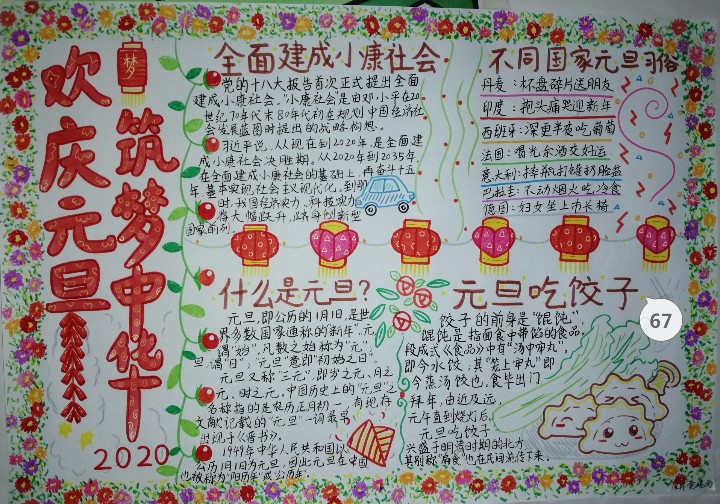 欢庆元旦
梦
筑梦中华
2020
全面建成小康社会
党的十八大报告首次正式提出全面
建成小康社会。"小康社会"是由邓小平在20
世纪70年代末80年代初在规划中国经济社
会发展蓝图时提出的战略构想。
习近平说,从现在到2020年,是全面建
成小康社会决胜期。从2020年到2035年,
在全面建成小康社会的基础上,再奋斗十五
年,基本实现社会主义现代化。到那
时,我国经济实力、科技实力
将大幅跃升,跻身创新型
国家前列。
不同国家元旦习俗
丹麦:杯盘碎片送朋友
印度:抱头痛哭迎新年
西班牙:深更半夜吃葡萄
法国:喝光余酒交好运
意大利:摔瓶打罐扔脸盆
巴拉圭:不动烟火吃冷食
德国:妇女坐上市长椅
什么是元旦?
元旦,即公历的1月1日,是世
界多数国家通称的"新年"。元,
谓"始",凡数之始称为"元";
旦,谓"日";"元旦"意即"初始之日"。
元旦又称"三元",即岁之元、月之
元、时之元。中国历史上的"元旦"之
名称指的是农历正月初一,有现存
文献记载的"元旦"一词最早
出现于《晋书》。
1949年中华人民共和国以
公历1月1日为元旦,因此元旦在中国
也被称为"阳历年"或"公历年"。
元旦吃饺子
饺子的前身是"馄饨"
馄饨是指面食中带馅的食品,
段成式《食品》中有"汤中牢丸",
即今水饺,其"笼上牢丸"即
今蒸汤饺也,食毕出门
拜年,由近及远,
元午直到烧灯后。
元旦吃饺子
兴盛于明清时期的北方
其别称"扁食"也在民间流传下来。
67